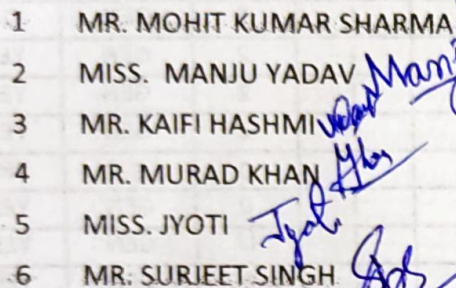 1 MR. MOHIT KUMAR SHARMA
2 MISS. MANJU YADAV
3 MR. KAIFI HASHMI
4 MR. MURAD KHAN
5 MISS. JYOTI Jyoti
6 MR. SURJEET SINGH